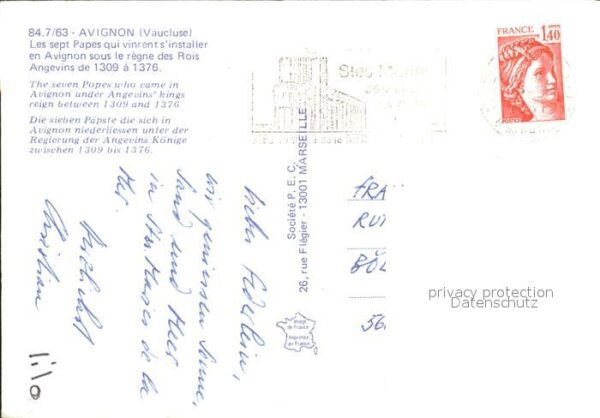 84.7/63 - AVIGNON (Vaucluse)
Les sept Papes qui vinrent s'installer
en Avignon sous le règne des Rois
Angevins de 1309 à 1376.
The seven Popes who came in
Avignon under Angevins' kings
reign between 1309 and 1376
Die sieben Päpste die sich in
Avignon niederliessen unter der
Regierung der Angevins Könige
zwischen 1309 bis 1376.
Société P.E.C.
26, rue Flégier - 13001 MARSEILLE
Image
de France
Imprimée
en France
Stes Maries
FRANCE
1,40
POSTES
Lieber Federlein,
wir geniessen Sonne,
Sand und Meer
in Stes Maries de la
Mer.
Herzlichst
Christian
FRA
RUT
BÖL
56
privacy protection
Datenschutz